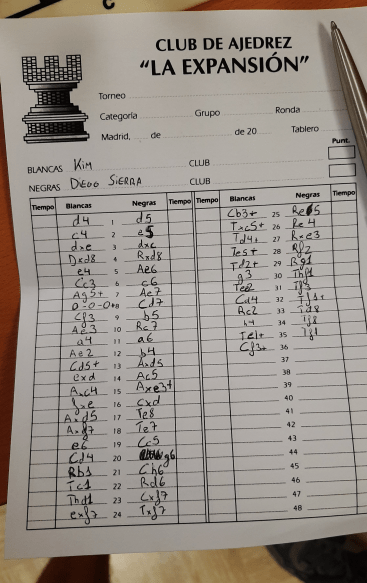 CLUB DE AJEDREZ
"LA EXPANSIÓN"
Torneo
Categoría Grupo Ronda
Madrid, de de 20 Tablero
Punt.
BLANCAS Kim CLUB
NEGRAS DIEGO SIERRA CLUB
Tiempo Blancas Negras Tiempo Tiempo Blancas Negras Tiempo
d4 1 d5
c4 2 e5
dxe 3 dxc
Dxd8 4 Rxd8
e4 5 Ae6
Cc3 6 c6
Ag5+ 7 Ae7
0-0-0+ 8 Cd7
Cf3 9 b5
Ae3 10 Rc7
a4 11 a6
Ae2 12 b4
Cd5+ 13 Axd5
exd 14 Ac5
Axc4 15 Axe3+
fxe 16 cxd
Axd5 17 Te8
Axf7 18 Te7
e6 19 Cc5
Cd4 20 g6
Rb1 21 Ch6
Tc1 22 Rd6
Thd1 23 Cxf7
exf7 24 Txf7
Cb3+ 25 Re5
Txc5+ 26 Re4
Td4+ 27 Rxe3
Te5+ 28 Rf2
Td2+ 29 Rg1
g3 30
Te2 31 Tf3
Cd4 32 Tf1+
Rc2 33
h4 34
Te1+ 35 Tf1
Cf3+ 36
37
38
39
40
41
42
43
44
45
46
47
48